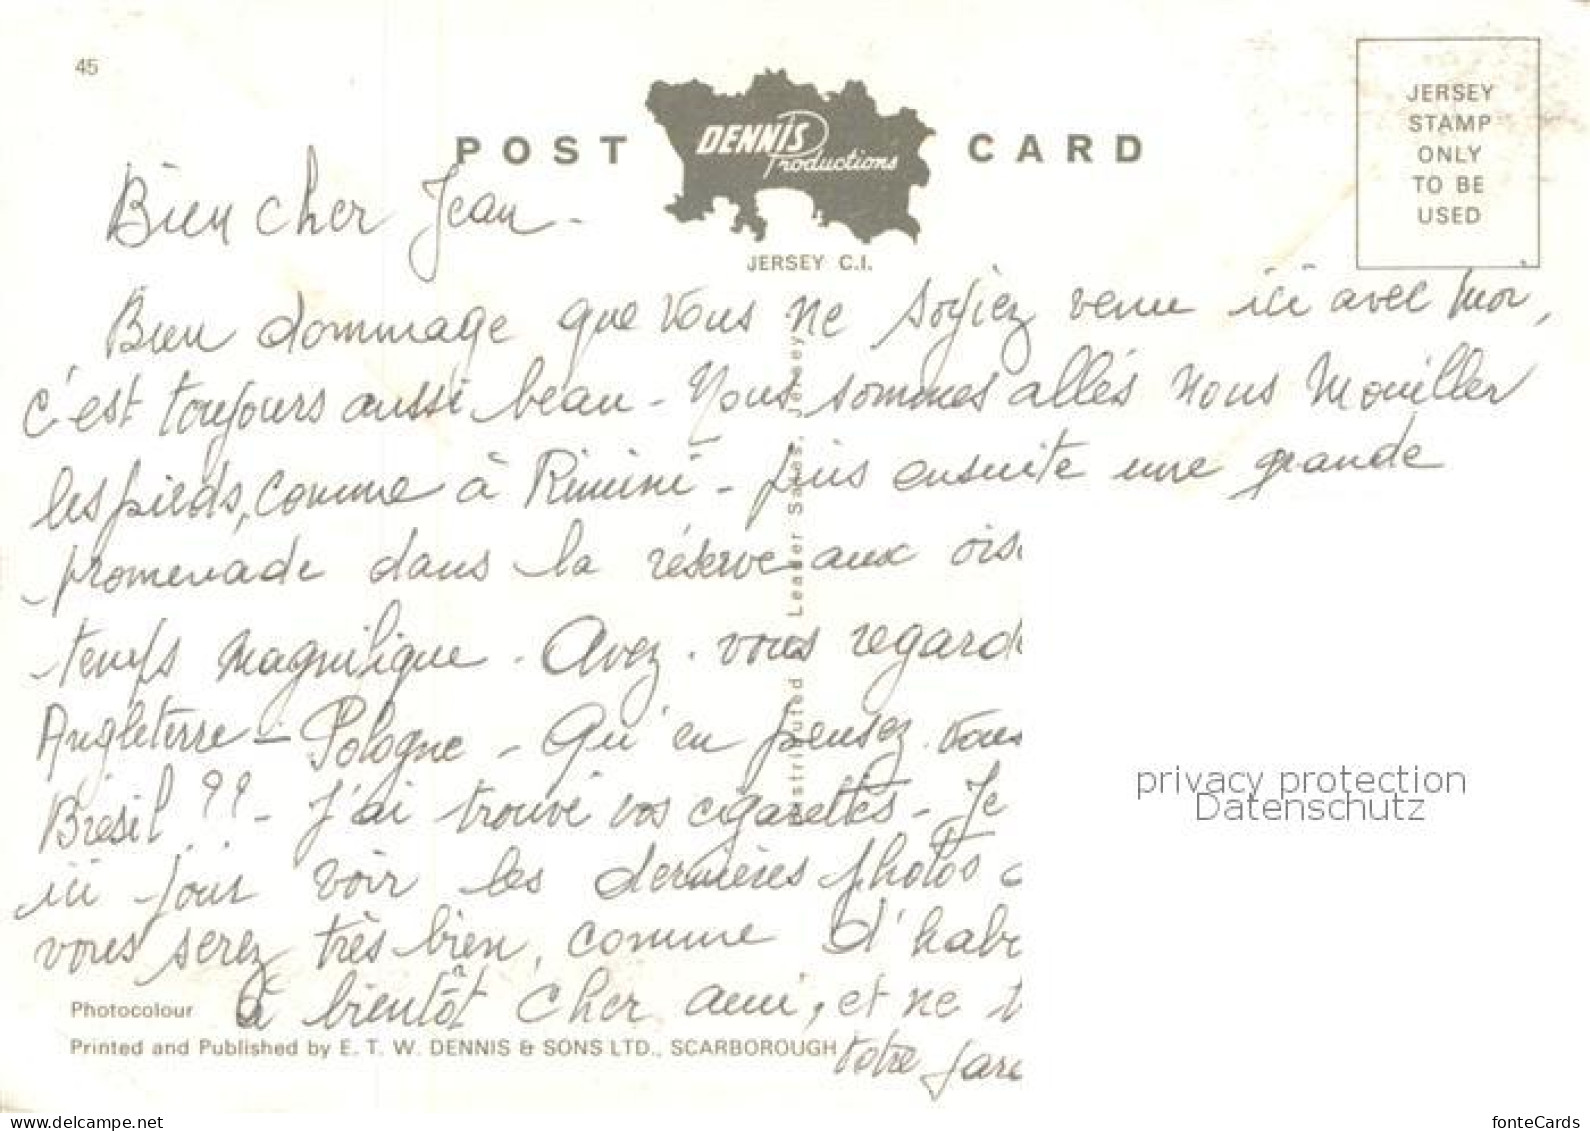 45
POST CARD
DENNIS
Productions
JERSEY C.I.
JERSEY
STAMP
ONLY
TO BE
USED
Bien cher Jean -
Bien dommage que vous ne soyiez venu ici avec moi,
c'est toujours aussi beau - Nous sommes allés nous mouiller
les pieds, comme à Rimini - puis ensuite une grande
promenade dans la réserve aux ois
temps magnifique. Avez-vous regard
Angleterre - Pologne - Qu'en pensez-vous
Brésil ?? - J'ai trouvé vos cigarettes - Je
ici pour voir les dernières photos
vous serez très bien, comme d'hab
à bientôt cher ami, et ne t
Votre
Distributed Leader Sales, Jersey
Photocolour
Printed and Published by E. T. W. DENNIS & SONS LTD., SCARBOROUGH
privacy protection
Datenschutz
www.delcampe.net
fonteCards